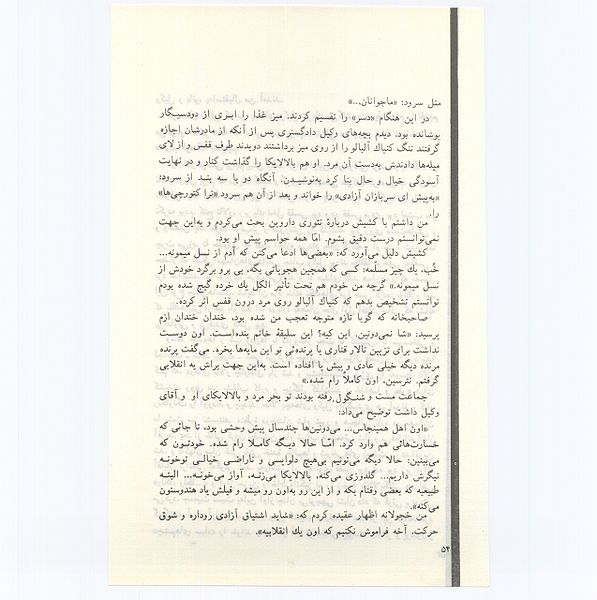 مثل سرود: «ماجوانان...»
در این هنگام «دسر» را تقسیم کردند. میز غذا را ابری از دودسیگار
پوشانده بود. دیدم بچه‌های وکیل دادگستری پس از آنکه از مادرشان اجازه
گرفتند تنگ کنیاک آلبالو را از روی میز برداشتند دویدند طرف قفس و از لای
میله‌ها دادندش به‌دست آن مرد. او هم بالالایکا را گذاشت کنار و در نهایت
آسودگی خیال و حال بنا کرد به‌نوشیدن. آنگاه دو یا سه بند از سرود:
«به‌پیش ای سربازان آزادی» را خواند و بعد از آن هم سرود «ترا کتورچی‌ها»
را.
من داشتم با کشیش دربارهٔ تئوری داروین بحث می‌کردم و به‌این جهت
نمی‌توانستم درست دقیق بشوم. امّا همه حواسم پیش او بود.
کشیش دلیل می‌آورد که: «بعضی‌ها ادعا می‌کنن که آدم از نسل میمونه...
خُب، یك چیز مسلّمه: کسی که همچین هجویاتی بگه، بی برو برگرد خودش از
نسل میمونه.» گرچه من خودم هم تحت تأثیر الکل یك خرده گیج شده بودم
توانستم تشخیص بدهم که کنیاك آلبالو روی مرد درون قفس اثر کرده.
صاحبخانه که گویا تازه متوجه تعجب من شده بود، خندان خندان ازم
پرسید: «شا نمی‌دونین. این کیه؟ این سلیقهٔ خانم بنده‌است. اون دوست
نداشت برای تزیین تالار قناری یا پرنده‌ئی تو این مایه‌ها بخره. می‌گفت پرنده
مرنده دیگه خیلی عادی و پیش پا افتاده است. به‌این جهت براش یه انقلابی
گرفتم. نترسین، اون کاملاً رام شده.»
جماعت مست و شنگول رفته بودند تو بحر مرد و بالالایکای او و آقای
وکیل داشت توضیح می‌داد:
«اون اهل همینجاس... می‌دونین‌ها چندسال پیش وحشی بود، تا جائی که
خسارت‌هائی هم وارد کرد. امّا حالا دیگه کاملا رام شده. خودتون که
می‌بینین: حالا دیگه می‌تونیم بی‌هیچ دلواپسی و ناراضی خیالی توخونه
نیگرش داریم... گلدوزی می‌کنه، بالالایکا می‌زنه، آواز می‌خونه... البته
طبیعیه که بعضی وقتام یکه و از این رو به‌اون رو میشه و فیلش یاد هندوستون
می‌کنه».
من خجولانه اظهار عقیده کردم که: «شاید اشتیاق آزادی روداره و شوق
حرکت. آخه فراموش نکنیم که اون یك انقلابیه».
۵۴